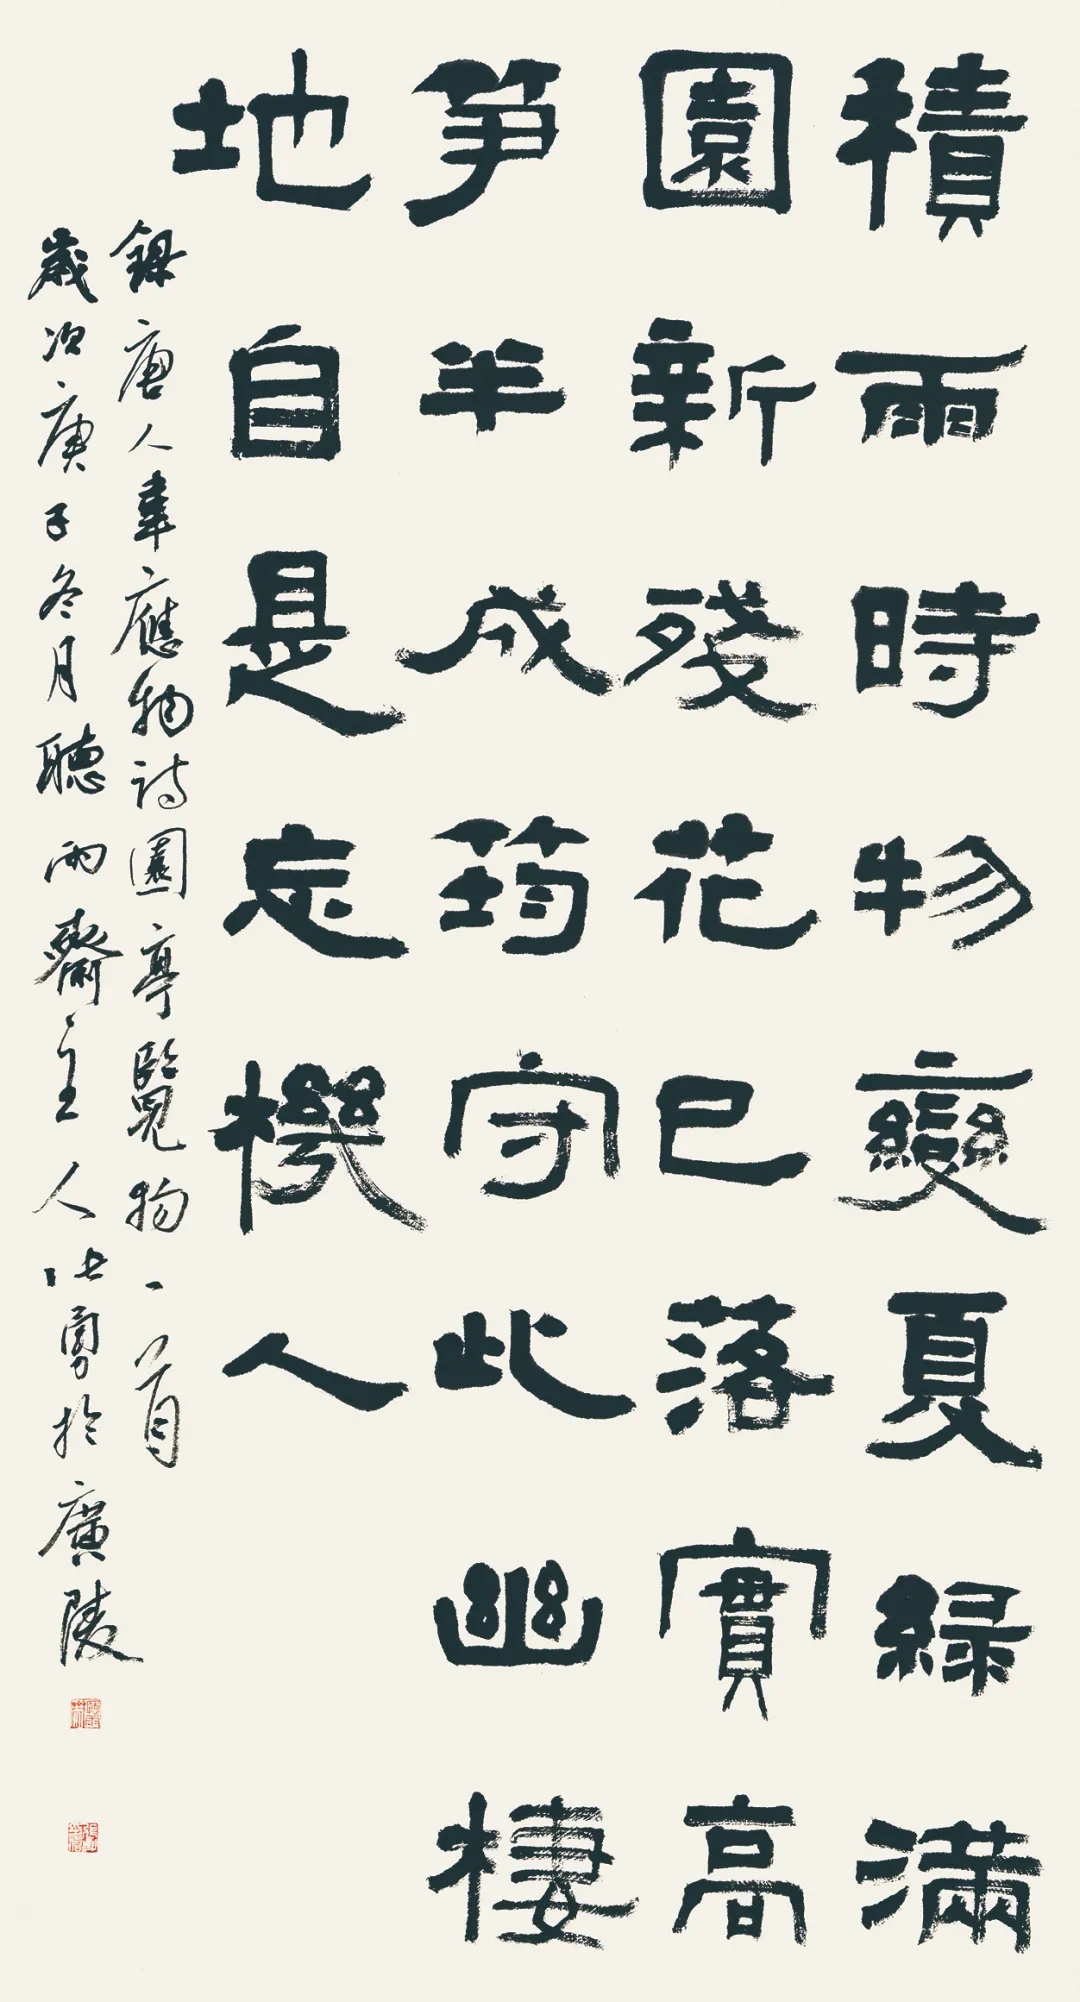 積雨時物變夏綠滿
園新殘花已落實高
笋半成筠守此幽棲
地自是忘機人
錄唐人韋應物詩園亭覽物一首
歲次庚子冬月聽雨齋主人張勇於廣陵